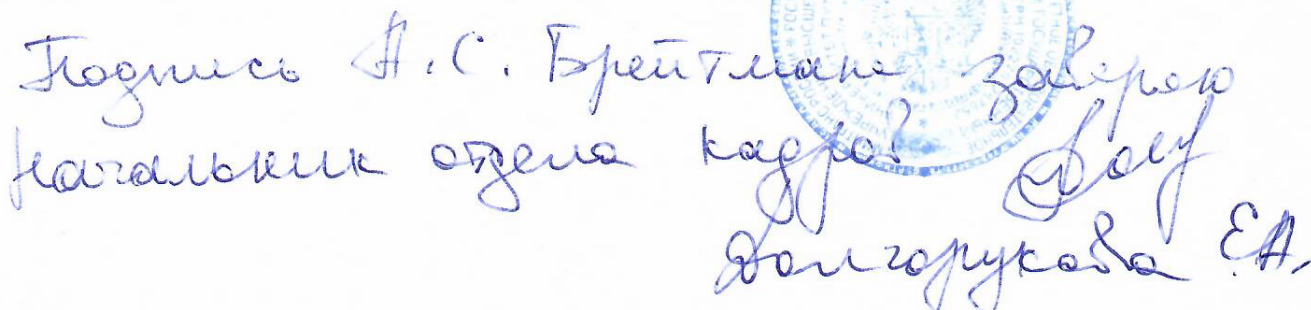 Подпись А.С. Брейтмана заверяю
Начальник отдела кадров
Долгорукова Е.А.